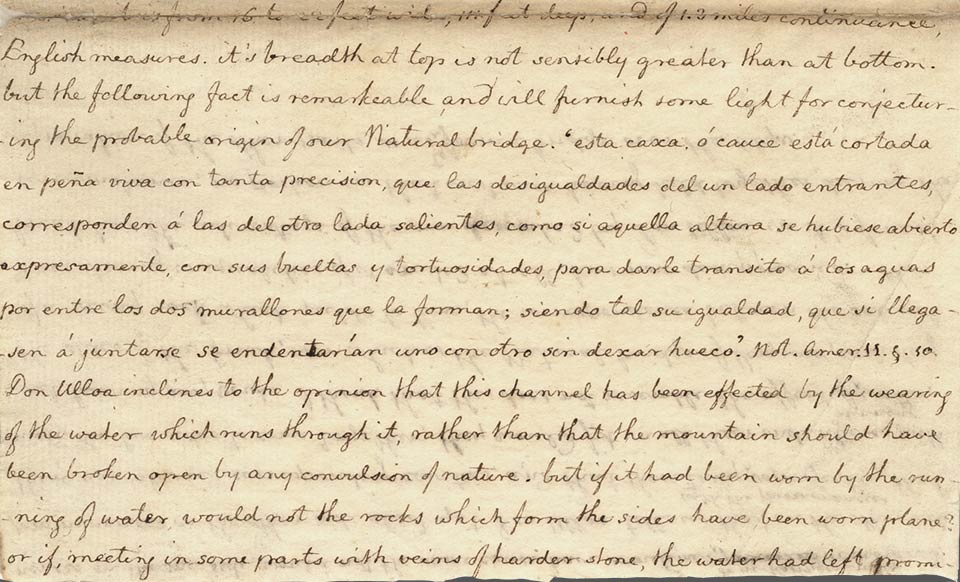 it is from 16 to 22 feet wide, 111 feet deep, and of 1.3 miles continuance,
English measures. it's breadth at top is not sensibly greater than at bottom.
but the following fact is remarkeable, and will furnish some light for conjectur-
-ing the probable origin of our Natural bridge. ‘esta caxa, ó cauce está cortada
en peña viva con tanta precision, que las desigualdades del un lado entrantes,
corresponden á las del otro lado salientes, como si aquella altura se hubiese abierto
expresamente, con sus bueltas y tortuosidades, para darle transito á los aguas
por entre los dos murallones que la forman; siendo tal su igualdad, que si llega-
-sen á juntarse se endentarían uno con otro sin dexar hueco.’ Not. Amer. II. §. 10.
Don Ulloa inclines to the opinion that this channel has been effected by the wearing
of the water which runs through it, rather than that the mountain should have
been broken open by any convulsion of nature. but if it had been worn by the run-
-ning of water, would not the rocks which form the sides have been worn plane?
or if, meeting in some parts with veins of harder stone, the water had left promi-